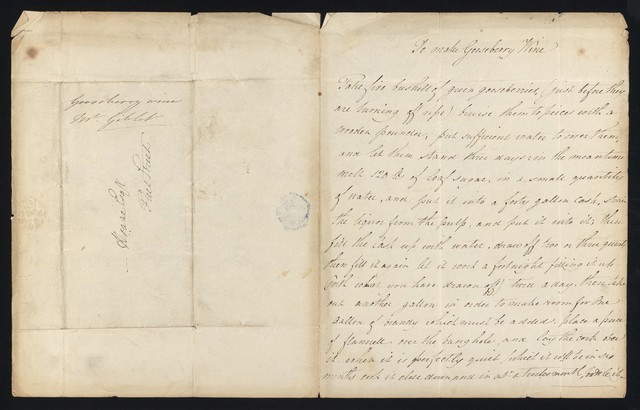 Gooseberry wine
Mr. Giblet
Hoare Esqr
Fleet Street
To make Gooseberry Wine
Take five bushell of green gooseberries, (just before they
are turning off ripe) bruise them to pieces with a
wooden pounder, put sufficient water to cover them,
and let them stand three days: in the meantime
melt 120 lb of loaf sugar, in a small quantity
of water, and put it into a forty gallon cask, strain
the liquor from the pulp, and put it into it; then
fill the cask up with water, draw off two or three quarts
then fill it again let it work a fortnight filling it up
(with what you have drawn off) twice a day, then take
out another gallon in order to make room for one
Gallon of brandy which must be added, place a piece
of flannell over the bunghole, and lay the cork over
it when it is perfectly quiet (which it will be in six
months cork it close down and in a twelvemonth, bottle it.